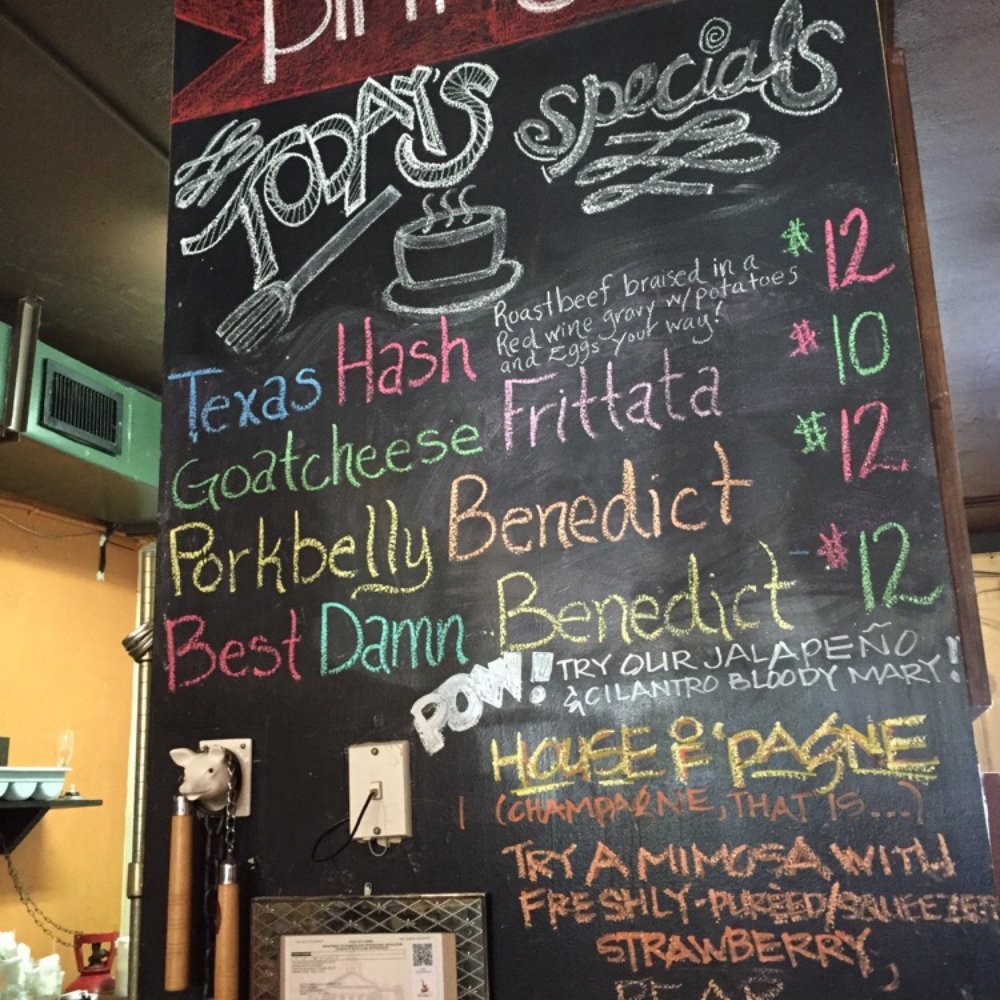 TODAY'S Specials
Roastbeef braised in a
Red wine gravy w/ potatoes
and Eggs your way!
Texas Hash $12
Goatcheese Frittata $10
Porkbelly Benedict $12
Best Damn Benedict $12
POW! TRY OUR JALAPEÑO
& CILANTRO BLOODY MARY!
HOUSE
(CHAMPAGNE, THAT IS...)
TRY A MIMOSA WITH
FRESHLY-PURÉED/SQUEEZED
STRAWBERRY,
PEAR